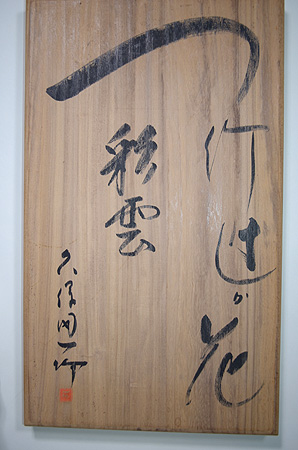 一竹辻が花
彩雲
久保田一竹